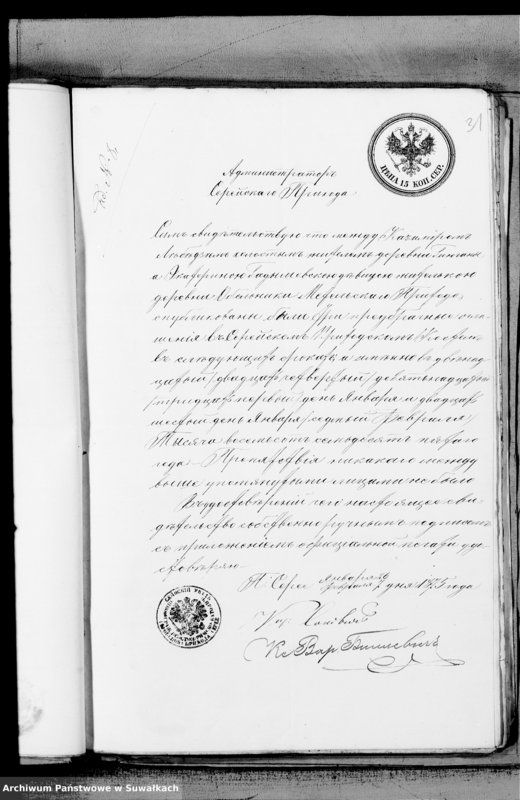 31
ЦѢНА 15 КОП. СЕР.
Администраторъ
Серейскаго Прихода
Симъ свидѣтельствую что между Казимиромъ
холостымъ жителемъ деревни
а Екатериною дѣвицею жительницею
деревни Прихода,
опубликованы были три предбрачные огла-
шенія въ Серейскомъ Приходскомъ Костелѣ
въ слѣдующихъ срокахъ а именно въ двѣнад-
цатый /двадцать четвертый/ девятнадцатый
/тридцать первый/ день Января и двадцать
шестой день Января /седьмый Февраля/
Тысяча восемьсотъ семьдесятъ пятаго
года. Препятствія никакого между
выше упомянутыми лицами не было
Въ удостовѣреніе чего настоящее сви-
дѣтельство собственноручнымъ подписомъ
съ приложеніемъ оффиціальной печати удо-
стовѣряю.
Января 26
Февраля 7 дня 1875 года
Archiwum Państwowe w Suwałkach